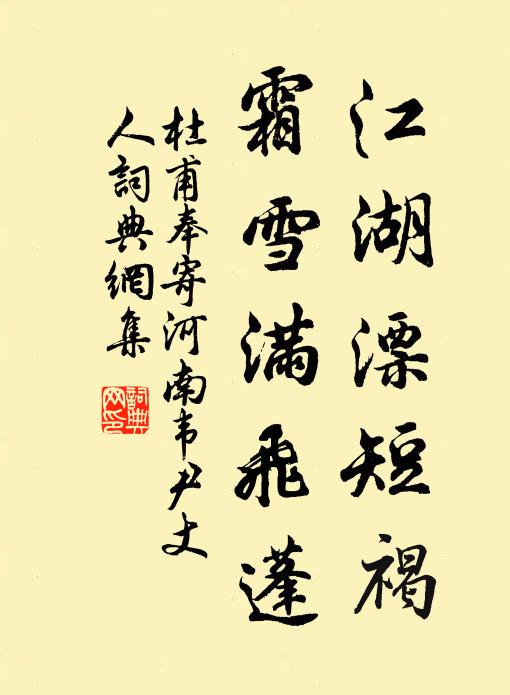 江湖漂短褐
霜雪滿飛蓬
杜甫奉寄河南韦尹丈
人詞典網集
詞典
网印